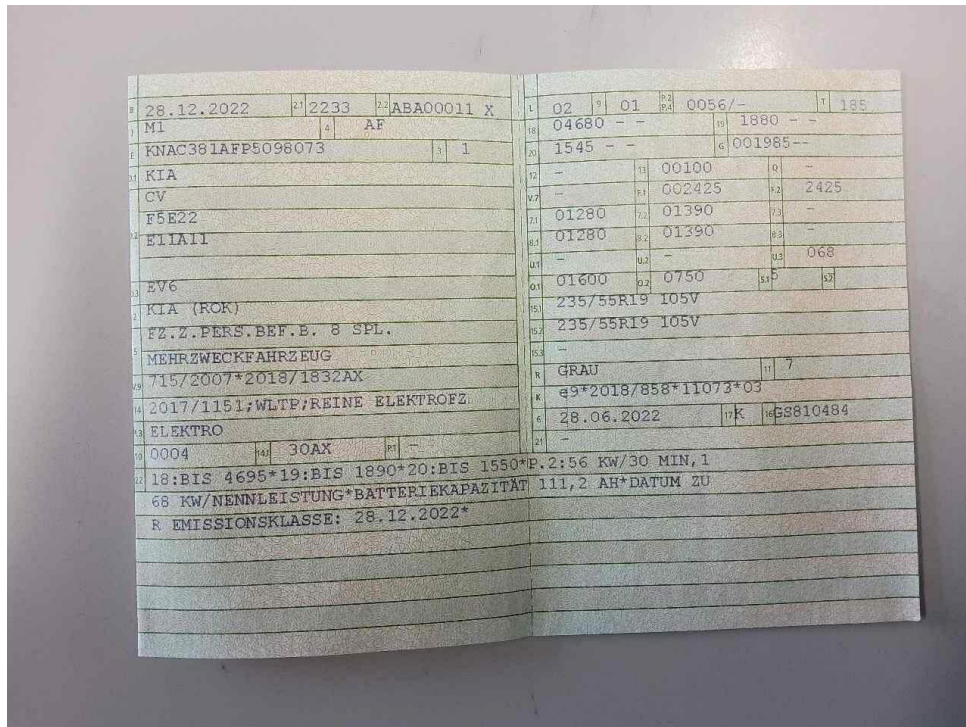 B 28.12.2022 2.1 2233 2.2 ABA00011 X
J M1 4 AF
E KNAC381AFP5098073 3 1
D.1 KIA
CV
D.2 F5E22
E11A11
D.3 EV6
2 KIA (ROK)
5 FZ.Z.PERS.BEF.B. 8 SPL.
MEHRZWECKFAHRZEUG
V.9 715/2007*2018/1832AX
14 2017/1151;WLTP;REINE ELEKTROFZ
P.3 ELEKTRO
10 0004 14.1 30AX P.1 -
L 02 9 01 P.2 P.4 0056/- T 185
18 04680 - - 19 1880 - -
20 1545 - - G 001985--
12 - 13 00100 Q -
V.7 - F.1 002425 F.2 2425
7.1 01280 7.2 01390 7.3 -
8.1 01280 8.2 01390 8.3 -
U.1 - U.2 - U.3 068
O.1 01600 O.2 0750 S.1 5 S.2
15.1 235/55R19 105V
15.2 235/55R19 105V
15.3 -
R GRAU 11 7
K e9*2018/858*11073*03
6 28.06.2022 17 K 16 GS810484
21 -
22 18:BIS 4695*19:BIS 1890*20:BIS 1550*P.2:56 KW/30 MIN,1
68 KW/NENNLEISTUNG*BATTERIEKAPAZITÄT 111,2 AH*DATUM ZU
R EMISSIONSKLASSE: 28.12.2022*